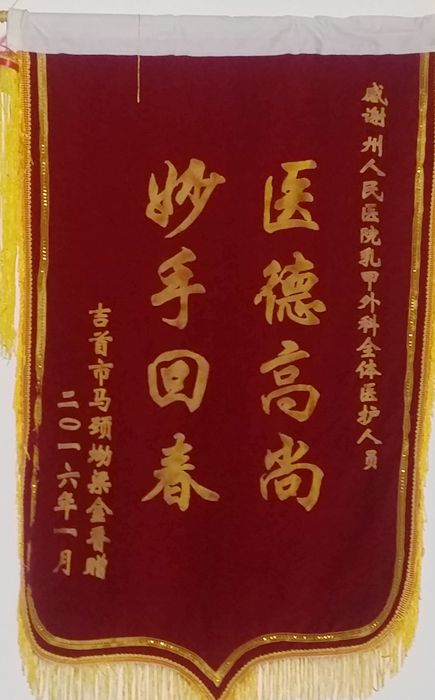 感谢州人民医院乳甲外科全体医护人员
医德高尚
妙手回春
吉首市马颈坳梁金香赠
二〇一六年一月